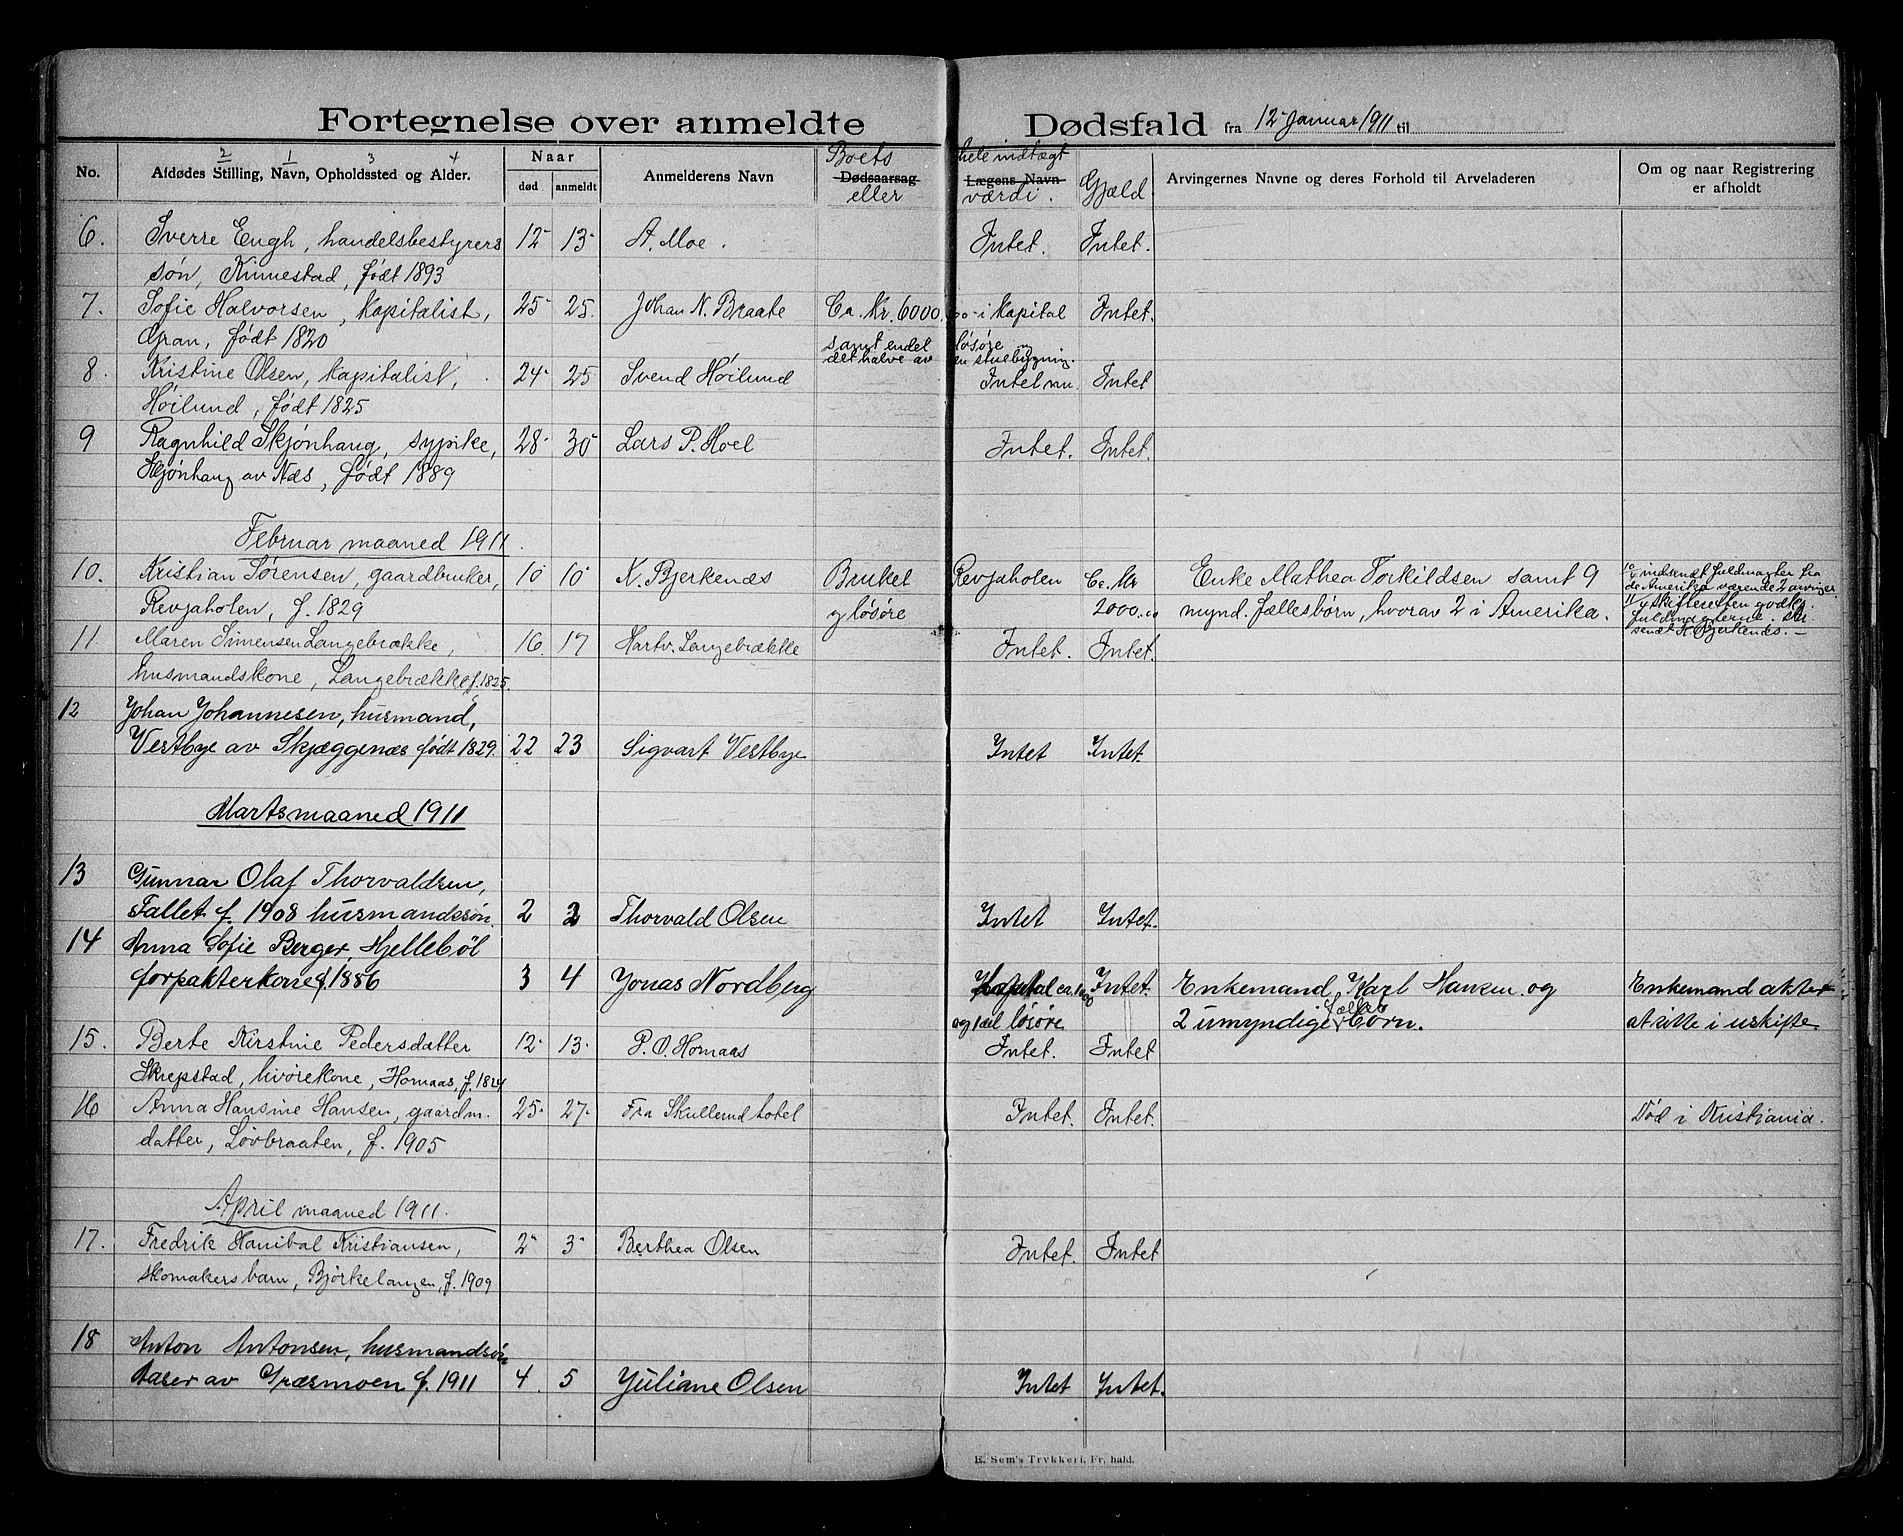 Fortegnelse over anmeldte Dødsfald fra 12 Januar 1911 til
No. Afdødes Stilling, Navn, Opholdssted og Alder. 2 1 3 4 Naar død anmeldt Anmelderens Navn Boets Dødsaarsag eller hele indtægt Lægens Navn værdi. Gjæld Arvingernes Navne og deres Forhold til Arveladeren Om og naar Registrering er afholdt
6. Sverre Engh, handelsbestyrers 12 13 A. Moe. Intet. Intet.
søn, Kinnestad, født 1893
7. Sofie Halvorsen, kapitalist, 25 25. Johan N. Braate Ca. Kr. 6000.00 i kapital Intet.
Gran, født 1820 samt endel løsøre og
det halve av en stuebygning.
8. Kristine Olsen, kapitalist, 24 25 Svend Høilund Intet nu Intet
Høilund, født 1825
9 Ragnhild Skjønhaug, sypike, 28 30 Lars P. Hoel Intet. Intet.
Skjønhaug av Næs, født 1889
Februar maaned 1911.
10. Kristian Sørensen, gaardbruker, 10 10 K. Bjerkenæs Bruket Revjaholen Ca. Kr Enke Mathea Torkildsen samt 9 indsendt fuldmagter fra
de Amerika værende 2 arvinger.
Revjaholen, f. 1829 og løsøre 2000.00 mynd. fællesbørn, hvorav 2 i Amerika. skifteretten godkj.
fuldmagterne.
sendt K. Bjerkenæs. —
11. Maren Simensen Langebrække, 16. 17 Hartv. Langebrække Intet. Intet.
husmandskone, Langebrække, f. 1825.
12 Johan Johannesen, husmand,
Vestbye av Skjæggenæs født 1829. 22 23 Sigvart Vestbye Intet Intet.
Martsmaaned 1911
13 Gunnar Olaf Thorvaldsen,
Fallet f. 1908 husmandssøn. 2 2 Thorvald Olsen Intet Intet.
14 Anna Sofie Berger, Hjellebøl
forpakterkone f. 1886 3 4 Jonas Nordberg Kapital ca. 1000 Intet. Enkemand Karl Hansen og Enkemand akter
og 1 del løsøre 2 umyndige fælles børn. at sitte i uskifte
15. Berte Kirstine Pedersdatter 12 13 P. O. Homaas Intet. Intet
Skrepstad, kvørekone, Homaas, f. 1824
16 Anna Hansine Hansen, gaardm. 25 27 Fra Skullerud hotel Intet. Intet. Død i Kristiania.
datter, Løvbraaten, f. 1905
April maaned 1911.
17. Fredrik Hanibal Kristiansen, 2 3 Berthea Olsen Intet. Intet
skomakers barn, Bjørkelangen, f. 1909
18 Anton Antonsen, husmandsøn
Aaser av Græsmoen f. 1911 4. 5 Juliane Olsen Intet Intet.
E. Sem's Trykkeri, Fr. hald.